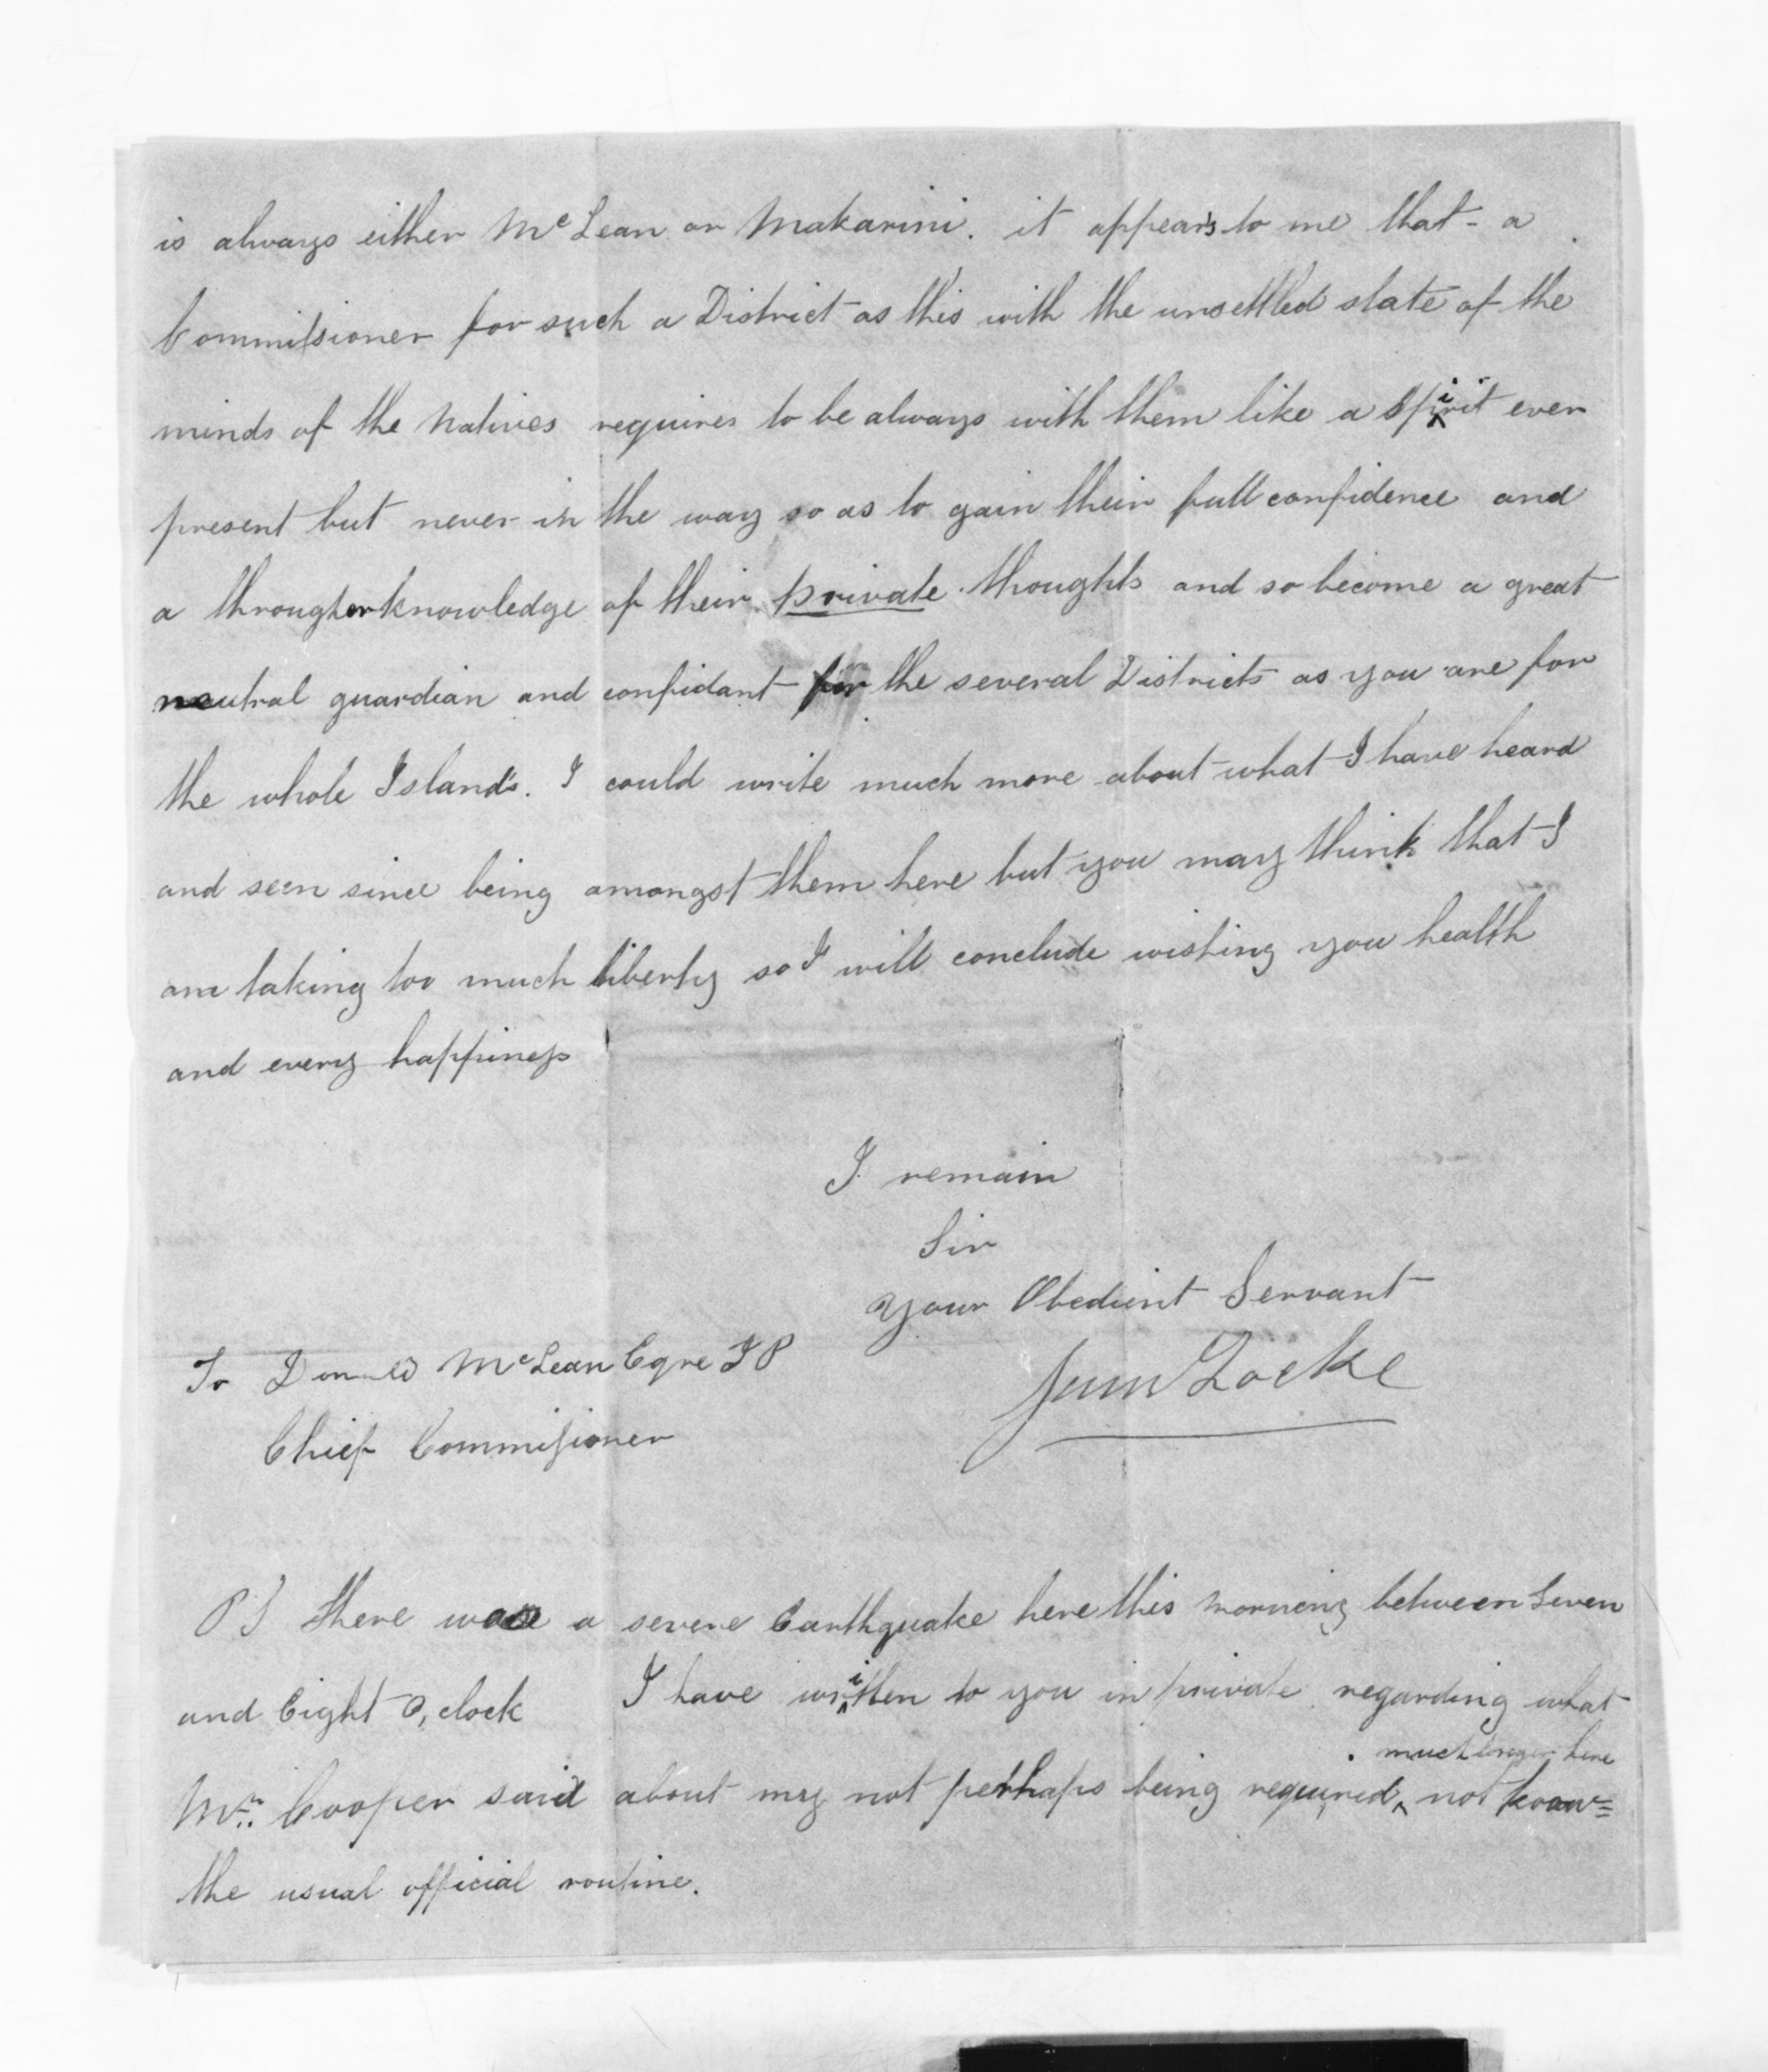 is always either McLean or Makarini. it appears to me that a
Commissioner for such a District as this with the unsettled state of the
minds of the Natives requires to be always with them like a spirit ever
present but never in the way so as to gain their full confidence and
a througher knowledge of their private thoughts and so become a great
neutral guardian and confidant for the several Districts as you are for
the whole Islands. I could write much more about what I have heard
and seen since being amongst them here but you may think that I
am taking too much liberty so I will conclude wishing you health
and every happiness
I remain
Sir
Your Obedient Servant
Locke
To Donald McLean Eqre J P
Chief Commissioner
P S there was a severe Earthquake here this morning between Seven
and Eight O,clock I have written to you in private regarding what
much longer here
Mr. Cooper said about my not perhaps being required not know=
the usual official routine.